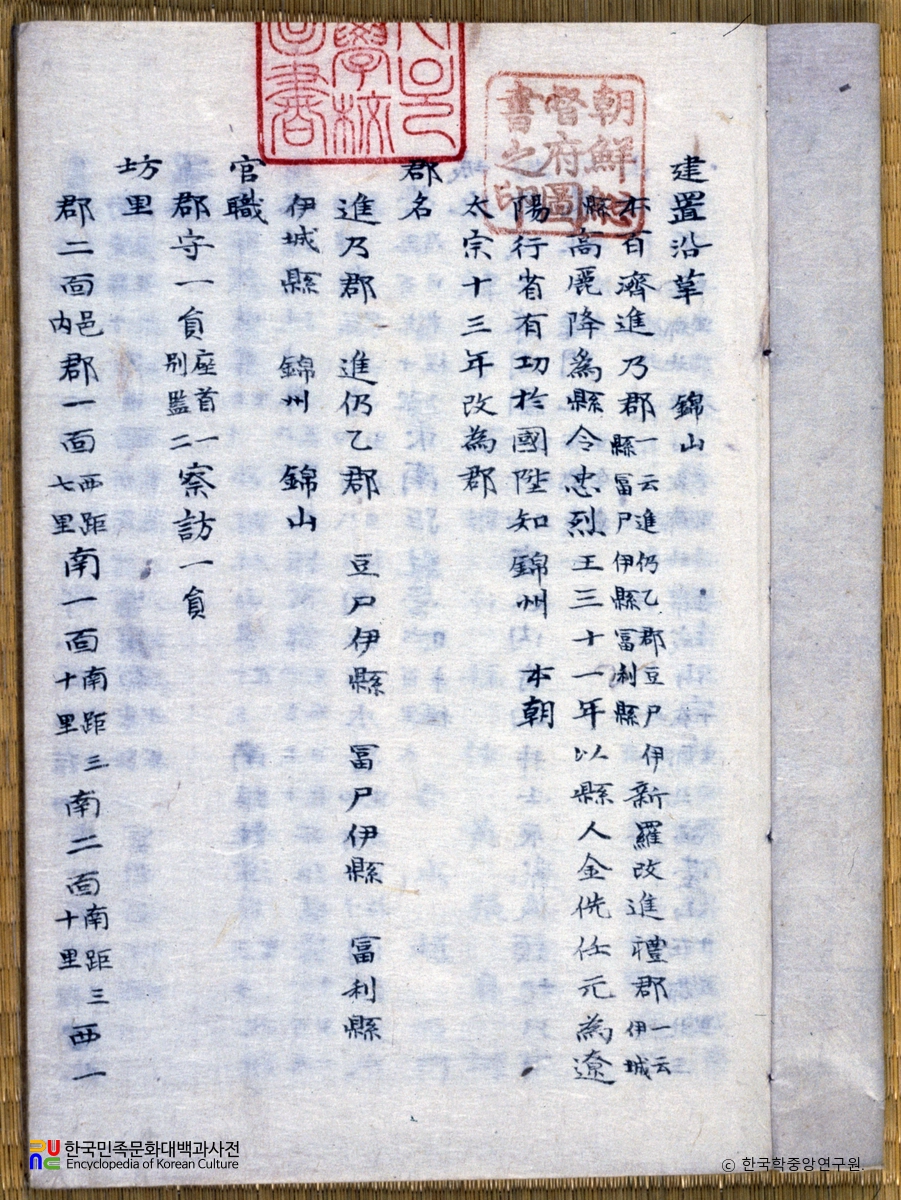 建置沿革 錦山
本百濟進乃郡一云進仍乙郡豆尸伊縣富尸伊縣富利縣新羅改進禮郡一云伊城
縣高麗降爲縣令忠烈王三十一年以縣人金侁任元為遼
陽行省有功於國陞知錦州 本朝
太宗十三年改為郡
郡名
進乃郡 進仍乙郡 豆尸伊縣 冨尸伊縣 富利縣
伊城縣 錦州 錦山
官職
郡守一員座首一別監二察訪一員
坊里
郡二面邑內郡一面西距七里南一面南距三十里南二面南距三十里西一
朝鮮總
督府圖
書之印
學校
圖書
한국민족문화대백과사전
Encyclopedia of Korean Culture
© 한국학중앙연구원